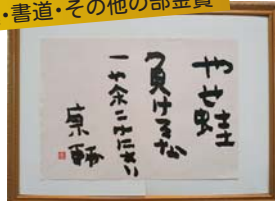 ・書道・その他の部金賞
やせ蛙
負けるな
一茶これにあり